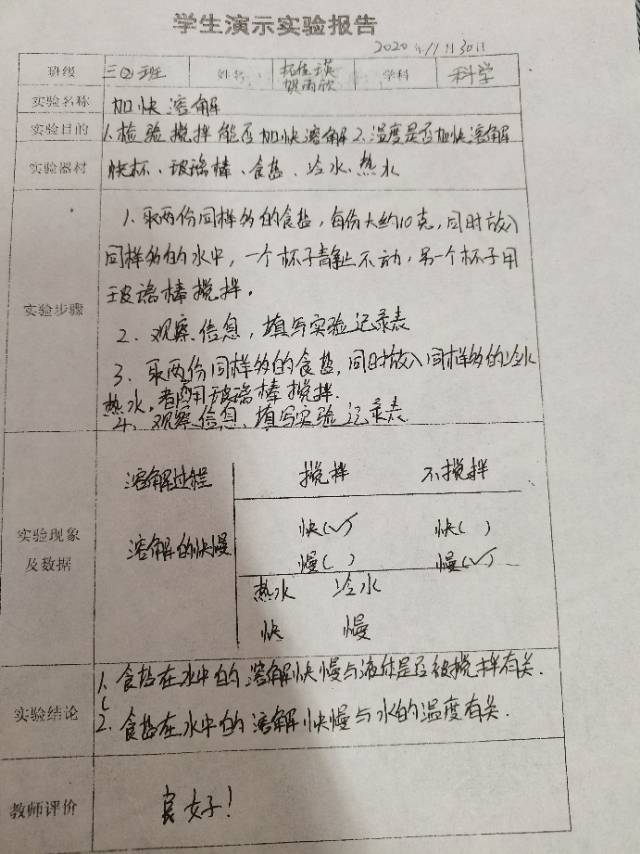 学生演示实验报告
2020年11月30日
班级 三(2)班 姓名 学科 科学
贺雨欣
实验名称 加快溶解
实验目的 1.检验搅拌能否加快溶解 2.温度是否加快溶解
实验器材 烧杯、玻璃棒、食盐、冷水、热水
1.取两份同样多的食盐,每份大约10克,同时放入
同样多的水中,一个杯子静止不动,另一个杯子用
玻璃棒搅拌.
实验步骤
2.观察信息,填写实验记录表
3.取两份同样多的食盐,同时放入同样多的冷水
热水,都用玻璃棒搅拌.
4.观察信息、填写实验记录表
溶解过程 搅拌 不搅拌
实验现象及数据
溶解的快慢 快(√) 快( )
慢( ) 慢(√)
热水 冷水
快 慢
1.食盐在水中的溶解快慢与液体是否被搅拌有关.
实验结论
2.食盐在水中的溶解快慢与水的温度有关.
教师评价 良好!